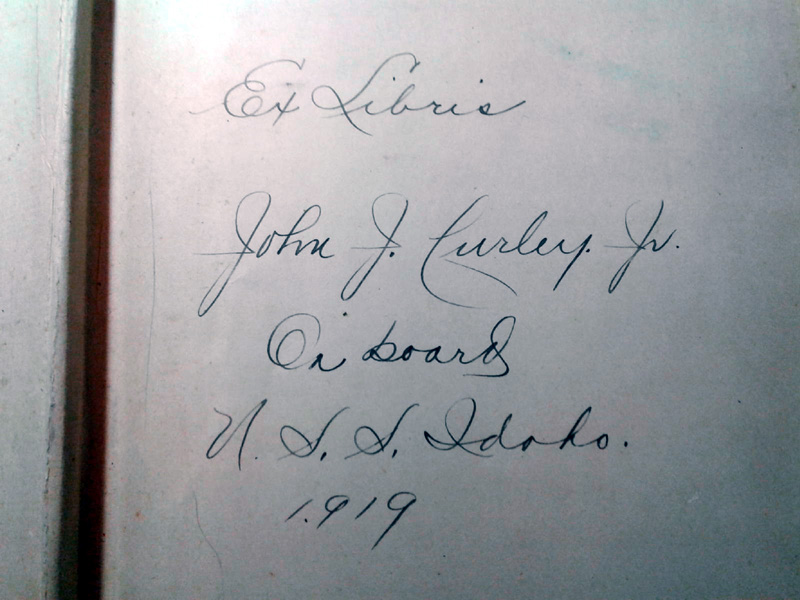 Ex Libris
John J. Curley. Jr.
On board
U.S.S. Idaho.
1919